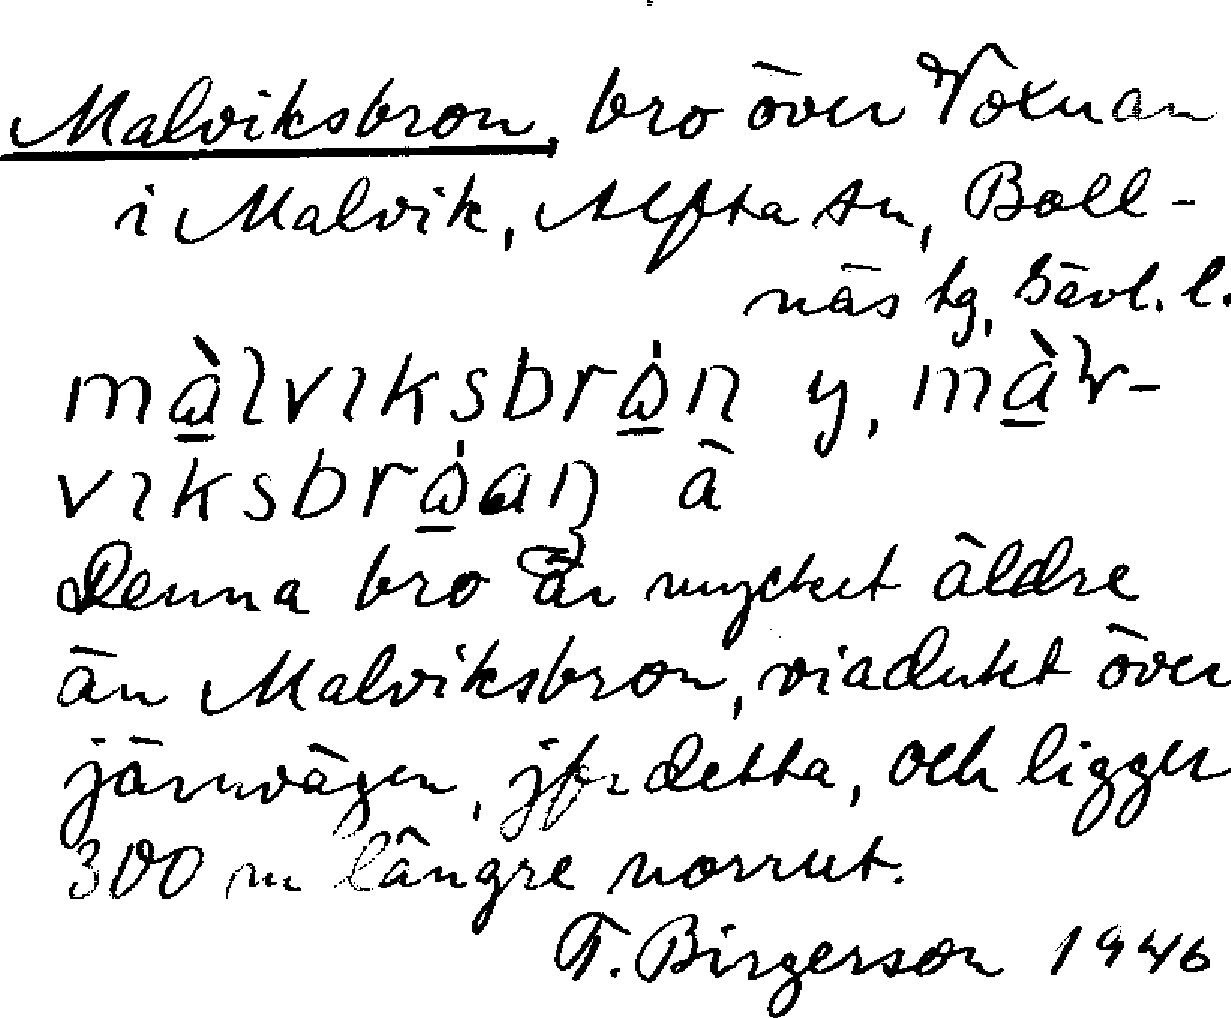 Malviksbron, bro över Voxnan
i Malvik, Alfta sn, Boll-
näs tg, Gävl. l.
màlviksbrón y, màlv-
viksbróan ä
Denna bro är mycket äldre
än Malviksbron, viadukt över
järnvägen, jfr detta, och ligger
300 m längre norrut.
F. Birgerson 1946